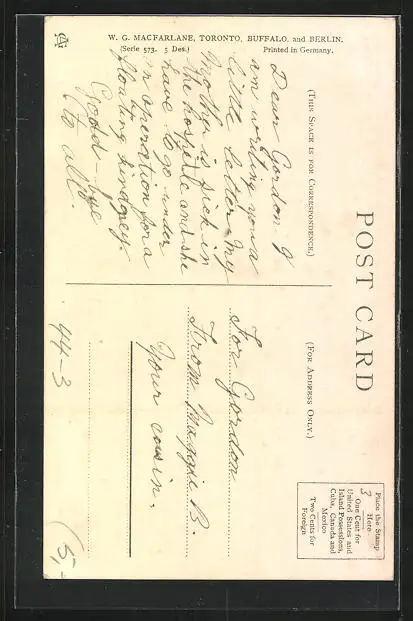 W. G. MACFARLANE, TORONTO, BUFFALO, and BERLIN.
(Serie 573. 5 Des.) Printed in Germany.
POST CARD
(THIS SPACE IS FOR CORRESPONDENCE.)
Dear Gordon I
am writing you a
little letter my
mother is sick in
the hospitle and she
have to go under
an operation for a
floating kindney.
Good-bye
to all
(FOR ADDRESS ONLY.)
Place the Stamp
Here
3
One Cent for
United States and
Island Possessions,
Cuba, Canada and
Mexico
Two Cents for
Foreign
For Gordon
From Maggie B.
Your cusin.
44-3
(5,-